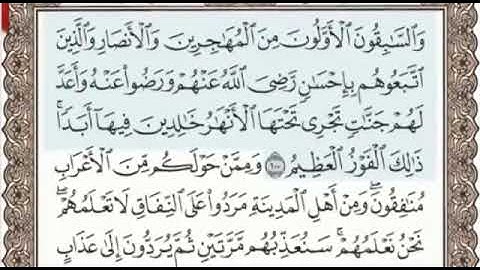 وَالسَّٰبِقُونَ الْأَوَّلُونَ مِنَ الْمُهَٰجِرِينَ وَالْأَنصَارِ وَالَّذِينَ
اتَّبَعُوهُم بِإِحْسَٰنٍ رَّضِىَ اللَّهُ عَنْهُمْ وَرَضُوا۟ عَنْهُ وَأَعَدَّ
لَهُمْ جَنَّٰتٍ تَجْرِى تَحْتَهَا الْأَنْهَٰرُ خَٰلِدِينَ فِيهَآ أَبَدًا ۚ
ذَٰلِكَ الْفَوْزُ الْعَظِيمُ ١٠٠ وَمِمَّنْ حَوْلَكُم مِّنَ الْأَعْرَابِ
مُنَٰفِقُونَ ۖ وَمِنْ أَهْلِ الْمَدِينَةِ ۖ مَرَدُوا۟ عَلَى النِّفَاقِ لَا تَعْلَمُهُمْ ۖ
نَحْنُ نَعْلَمُهُمْ ۚ سَنُعَذِّبُهُم مَّرَّتَيْنِ ثُمَّ يُرَدُّونَ إِلَىٰ عَذَابٍ